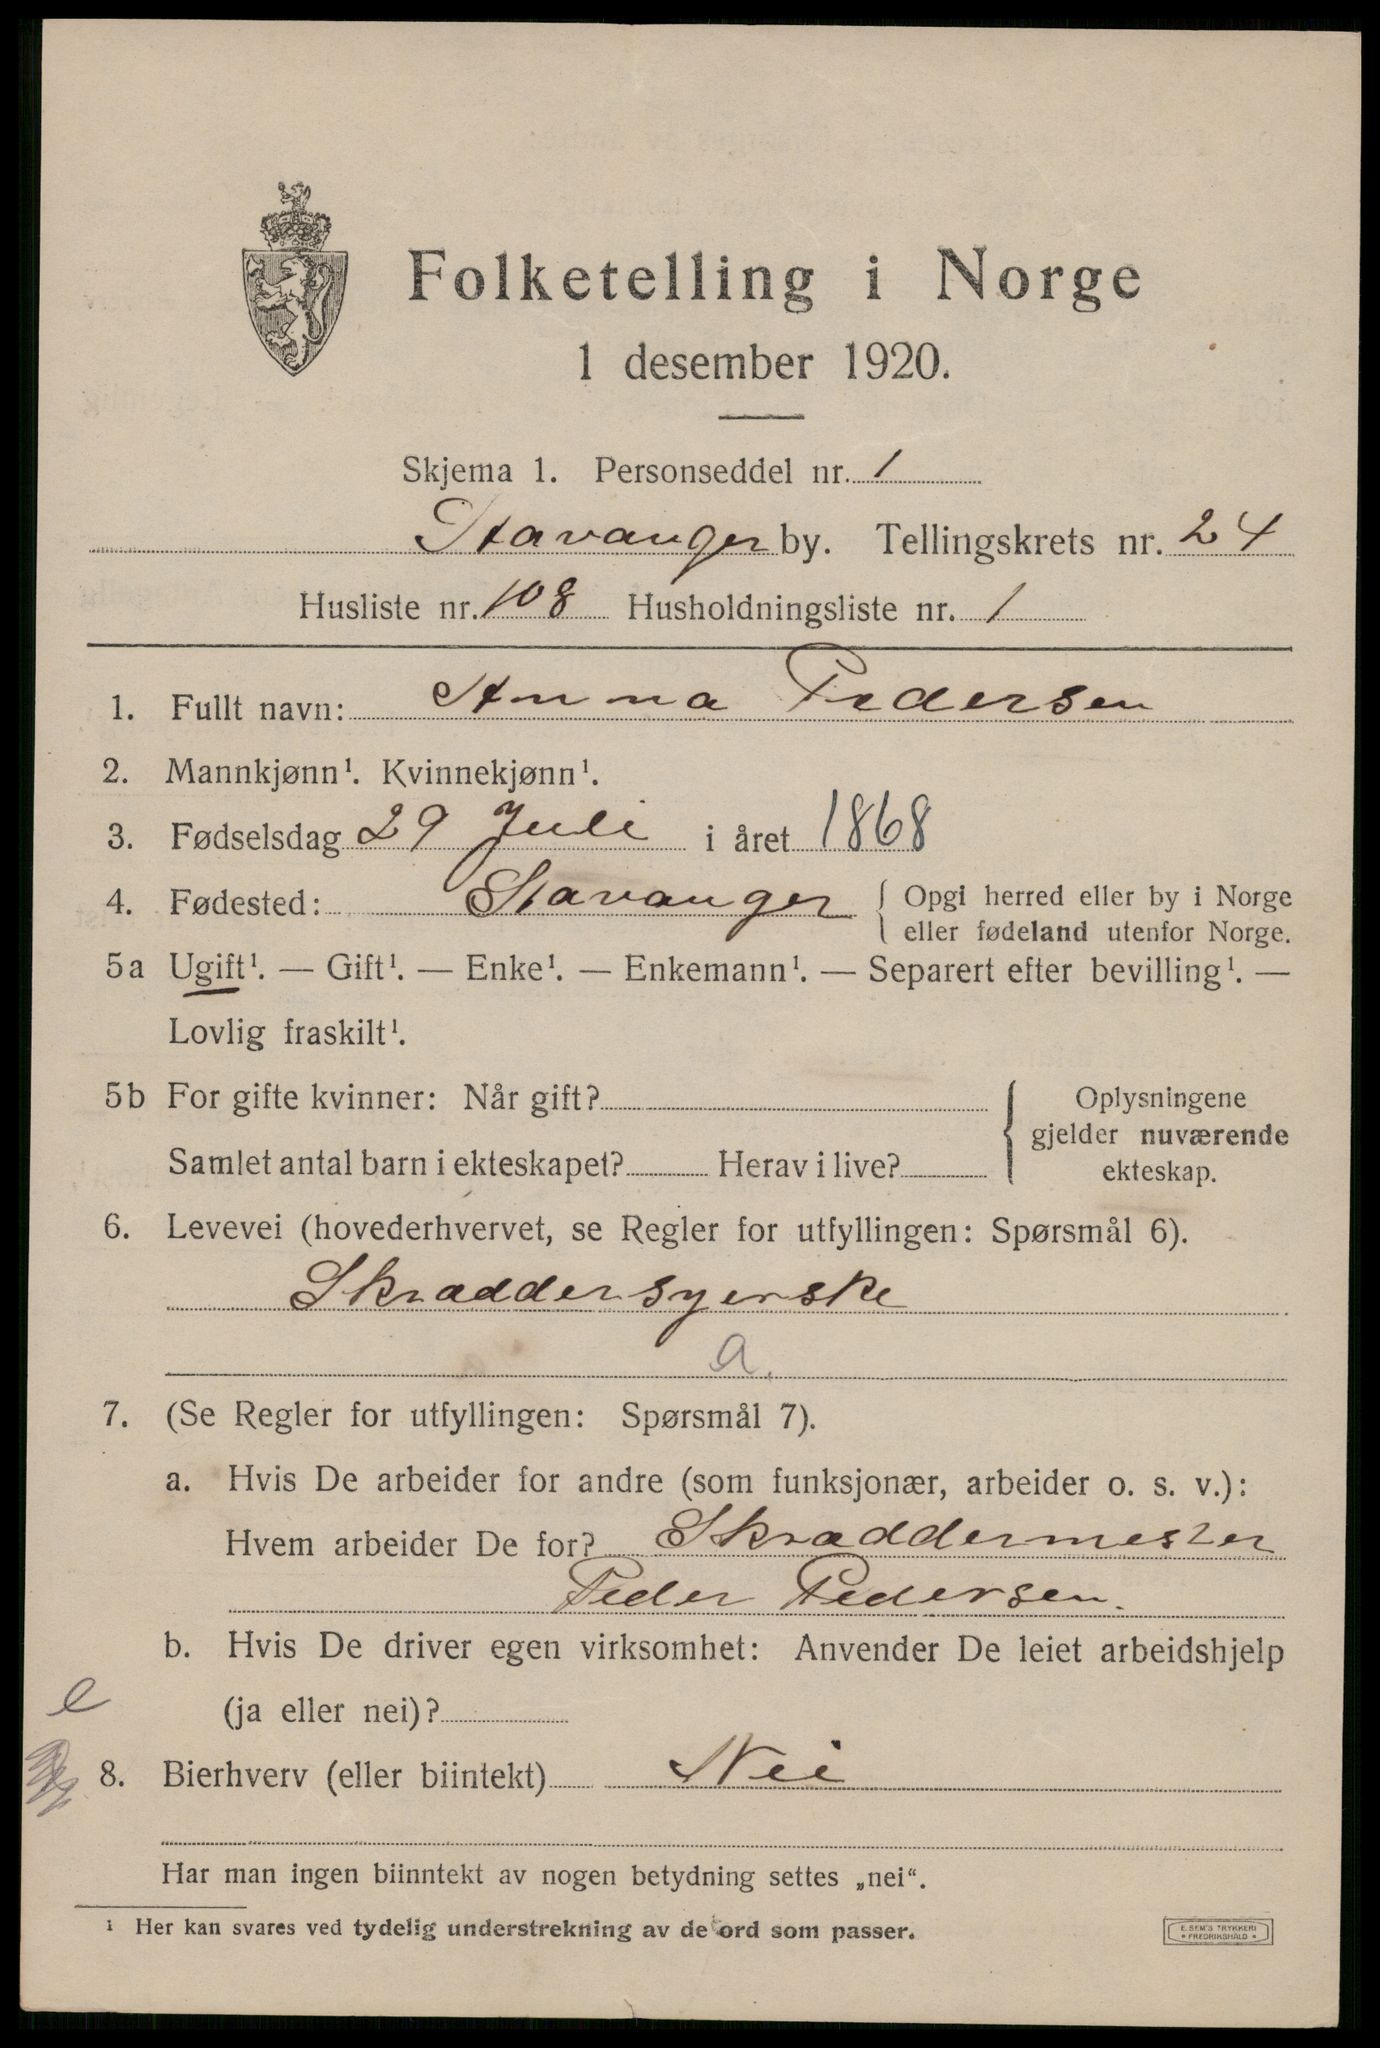 Folketelling i Norge
1 desember 1920.
Skjema 1. Personseddel nr. 1
Stavanger by. Tellingskrets nr. 24
Husliste nr. 108 Husholdningsliste nr. 1
1. Fullt navn: Anna Pedersen
2. Mannkjønn¹. Kvinnekjønn¹.
3. Fødselsdag 29 Juli i året 1868
4. Fødested: Stavanger { Opgi herred eller by i Norge
eller fødeland utenfor Norge.
5a Ugift¹. — Gift¹. — Enke¹. — Enkemann¹. — Separert efter bevilling¹. —
Lovlig fraskilt¹.
5b For gifte kvinner: Når gift?
Samlet antal barn i ekteskapet? Herav i live?
{ Oplysningene
gjelder nuværende
ekteskap.
6. Levevei (hovederhvervet, se Regler for utfyllingen: Spørsmål 6).
Skræddersyerske
a.
7. (Se Regler for utfyllingen: Spørsmål 7).
a. Hvis De arbeider for andre (som funksjonær, arbeider o. s. v.):
Hvem arbeider De for? Skræddermester
Peder Pedersen.
b. Hvis De driver egen virksomhet: Anvender De leiet arbeidshjelp
e
(ja eller nei)?
8. Bierhverv (eller biintekt) Nei
Har man ingen biinntekt av nogen betydning settes „nei“.
¹ Her kan svares ved tydelig understrekning av de ord som passer.
E. SEM'S TRYKKERI
• FREDRIKSHALD •